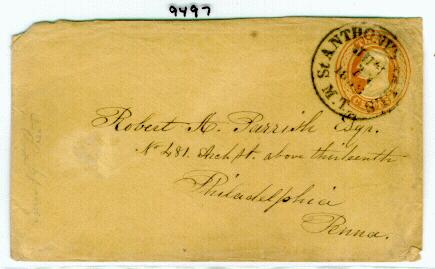 9497
St ANTHONY'S FALLS M.T.
Robert A. Parrish Esqr.
No 481. Arch St. above thirteenth
Philadelphia
Penna.